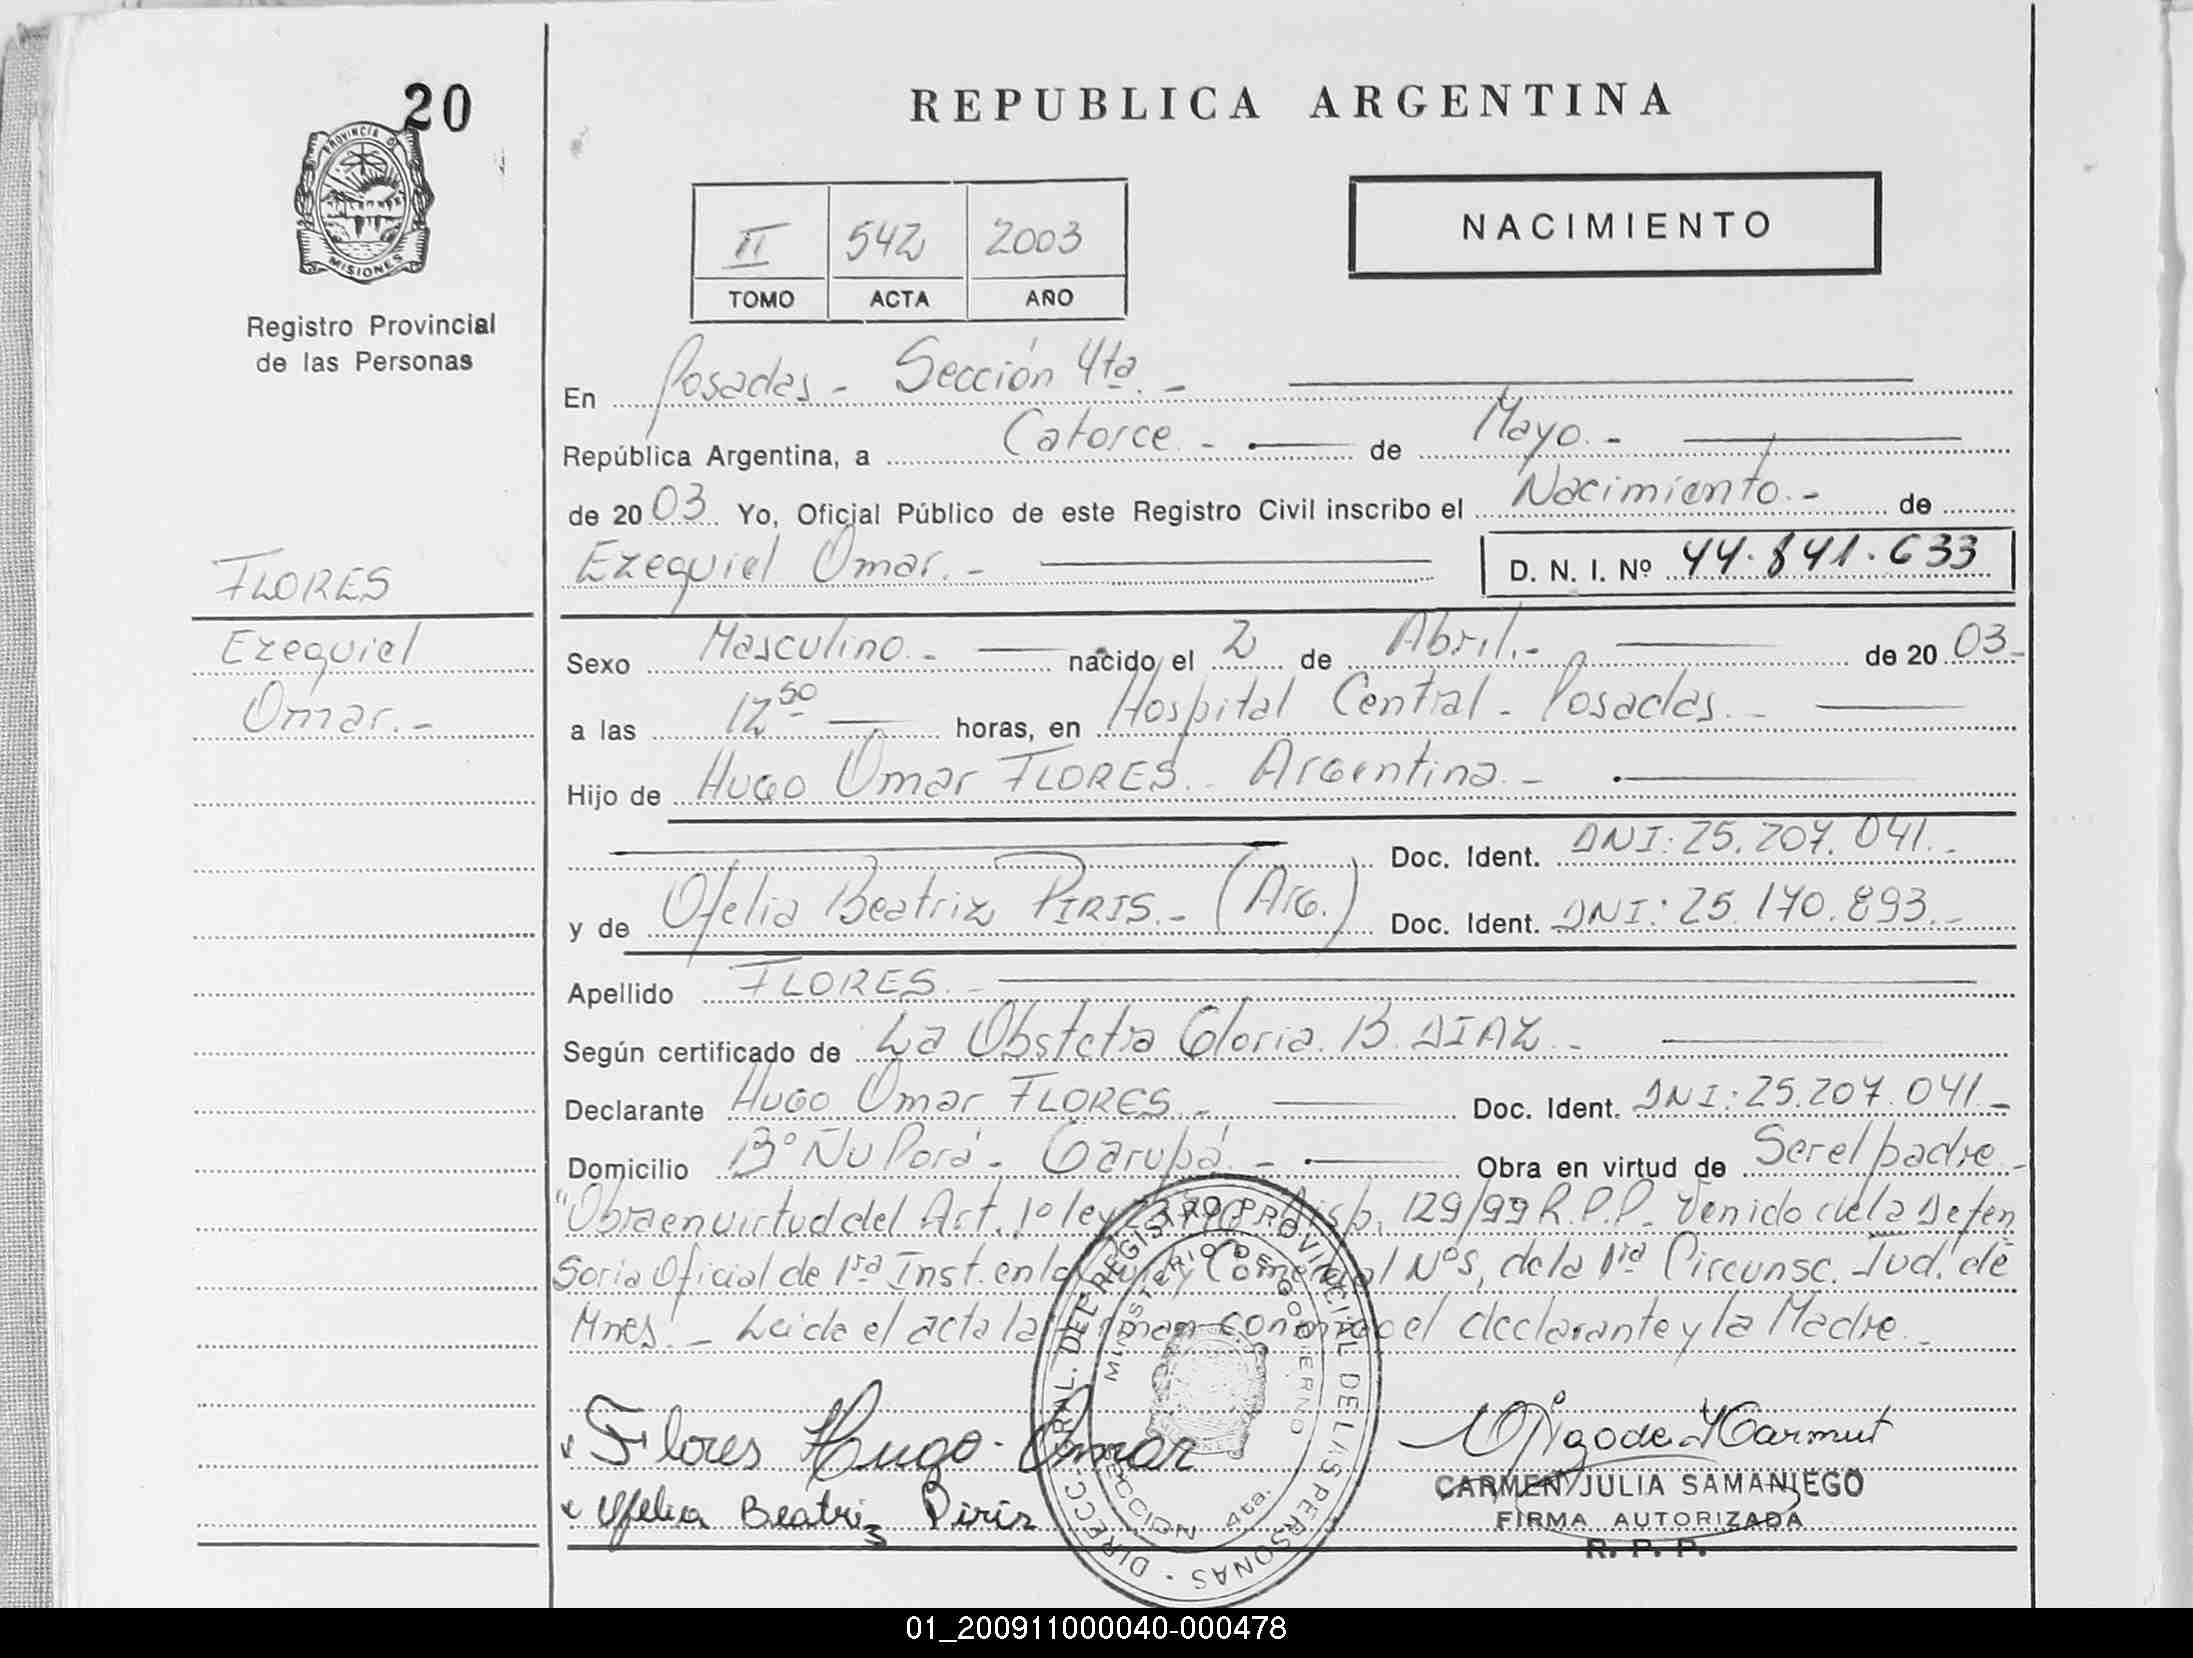 20
PROVINCIA DE
MISIONES
Registro Provincial
de las Personas
REPUBLICA ARGENTINA
II 542 2003
TOMO ACTA AÑO
NACIMIENTO
En Posadas - Sección 4ta. -
República Argentina, a Catorce. - de Mayo. -
de 20 03 Yo, Oficial Público de este Registro Civil inscribo el Nacimiento. - de
Ezequiel Omar. - D. N. I. Nº 44.841.633
FLORES
Ezequiel
Omar. -
Sexo Masculino. - nacido el 2 de Abril. - de 20 03
a las 12 50 horas, en Hospital Central - Posadas. -
Hijo de Hugo Omar FLORES. Argentina. -
Doc. Ident. DNI: 25.207.041. -
y de Ofelia Beatriz PIRIS. - (Arg.) Doc. Ident. DNI: 25.170.893. -
Apellido FLORES. -
Según certificado de La Obstetra Gloria. B. DIAZ -
Declarante Hugo Omar FLORES. - Doc. Ident. DNI: 25.207.041 -
Domicilio Bº Ñu Porá - Garupá. - Obra en virtud de Ser el padre -
"Obra en virtud del Art. 1º ley Disp. 129/99 R.P.P. Venido de la Defen
soria Oficial de 1ra Inst. en lo Civil y Comercial Nº 5, de la 1ra Circunsc. Jud. de
Mnes". - Leida el acta la firman conmigo el declarante y la Madre. -
Flores Hugo Omar
Ofelia Beatriz Piris
CARMEN JULIA SAMANIEGO
FIRMA AUTORIZADA
R. P. P.
DIRECC. GRAL. DEL REGISTRO PROVINCIAL DE LAS PERSONAS -
MINISTERIO DE GOBIERNO
SECCION 4ta.
01_200911000040-000478